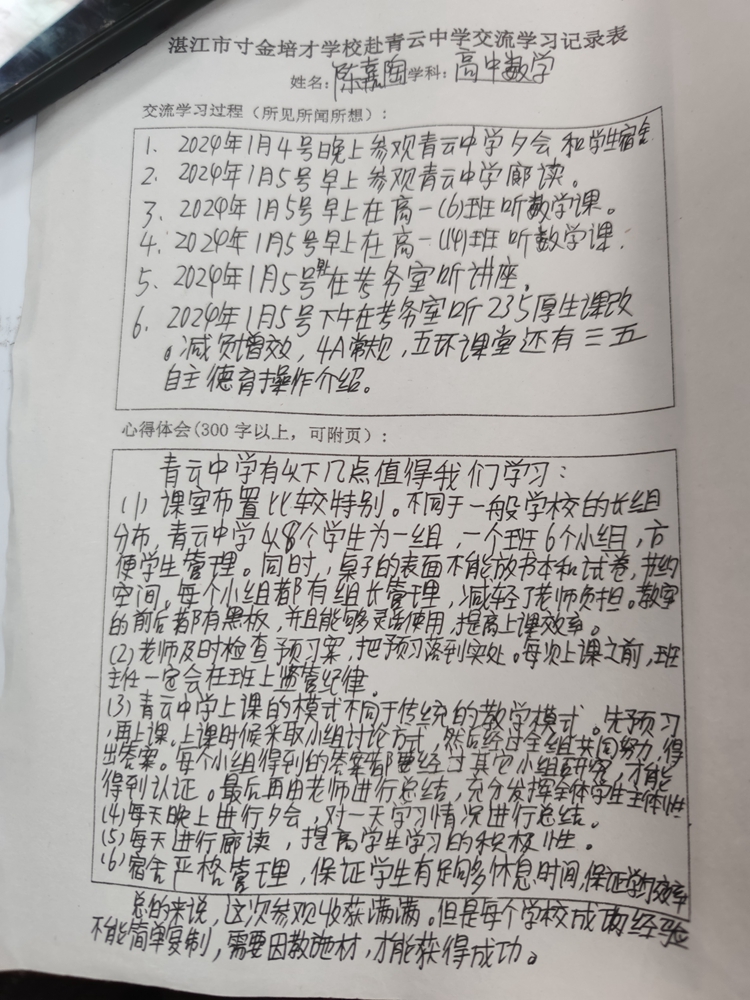 湛江市寸金培才学校赴青云中学交流学习记录表
姓名：陈嘉陶学科：高中数学
交流学习过程（所见所闻所想）：
1、2024年1月4号晚上参观青云中学夕会和学生宿舍
2、2024年1月5号早上参观青云中学廊读。
3、2024年1月5号早上在高一(6)班听数学课。
4、2024年1月5号早上在高一(14)班听数学课.
5、2024年1月5号早上在考务室听讲座。
6、2024年1月5号下午在考务室听235厚生课改
。减负增效，4A常规，五环课堂还有三五
自主德育操作介绍。
心得体会(300字以上，可附页）：
青云中学有以下几点值得我们学习：
(1)课室布置比较特别。不同于一般学校的长组
分布，青云中学以8个学生为一组，一个班6个小组，方
便学生管理。同时，桌子的表面不能放书本和试卷，节约
空间。每个小组都有组长管理，减轻了老师负担。教室
的前后都有黑板，并且能够灵活使用，提高上课效率。
(2)老师及时检查预习案，把预习落到实处。每次上课之前，班
主任一定会在班上监管纪律。
(3)青云中学上课的模式不同于传统的教学模式。先预习
，再上课。上课时候采取小组讨论方式，然后经过全组共同努力，得
出答案。每个小组得到的答案都要经过其它小组研究，才能
得到认证。最后再由老师进行总结，充分发挥全体学生主体性
(4)每天晚上进行夕会，对一天学习情况进行总结。
(5)每天进行廊读，提高学生学习的积极性。
(6)宿舍严格管理，保证学生有足够多休息时间，保证学习效率
总的来说，这次参观收获满满。但是每个学校成功经验
不能简单复制，需要因教施材，才能获得成功。